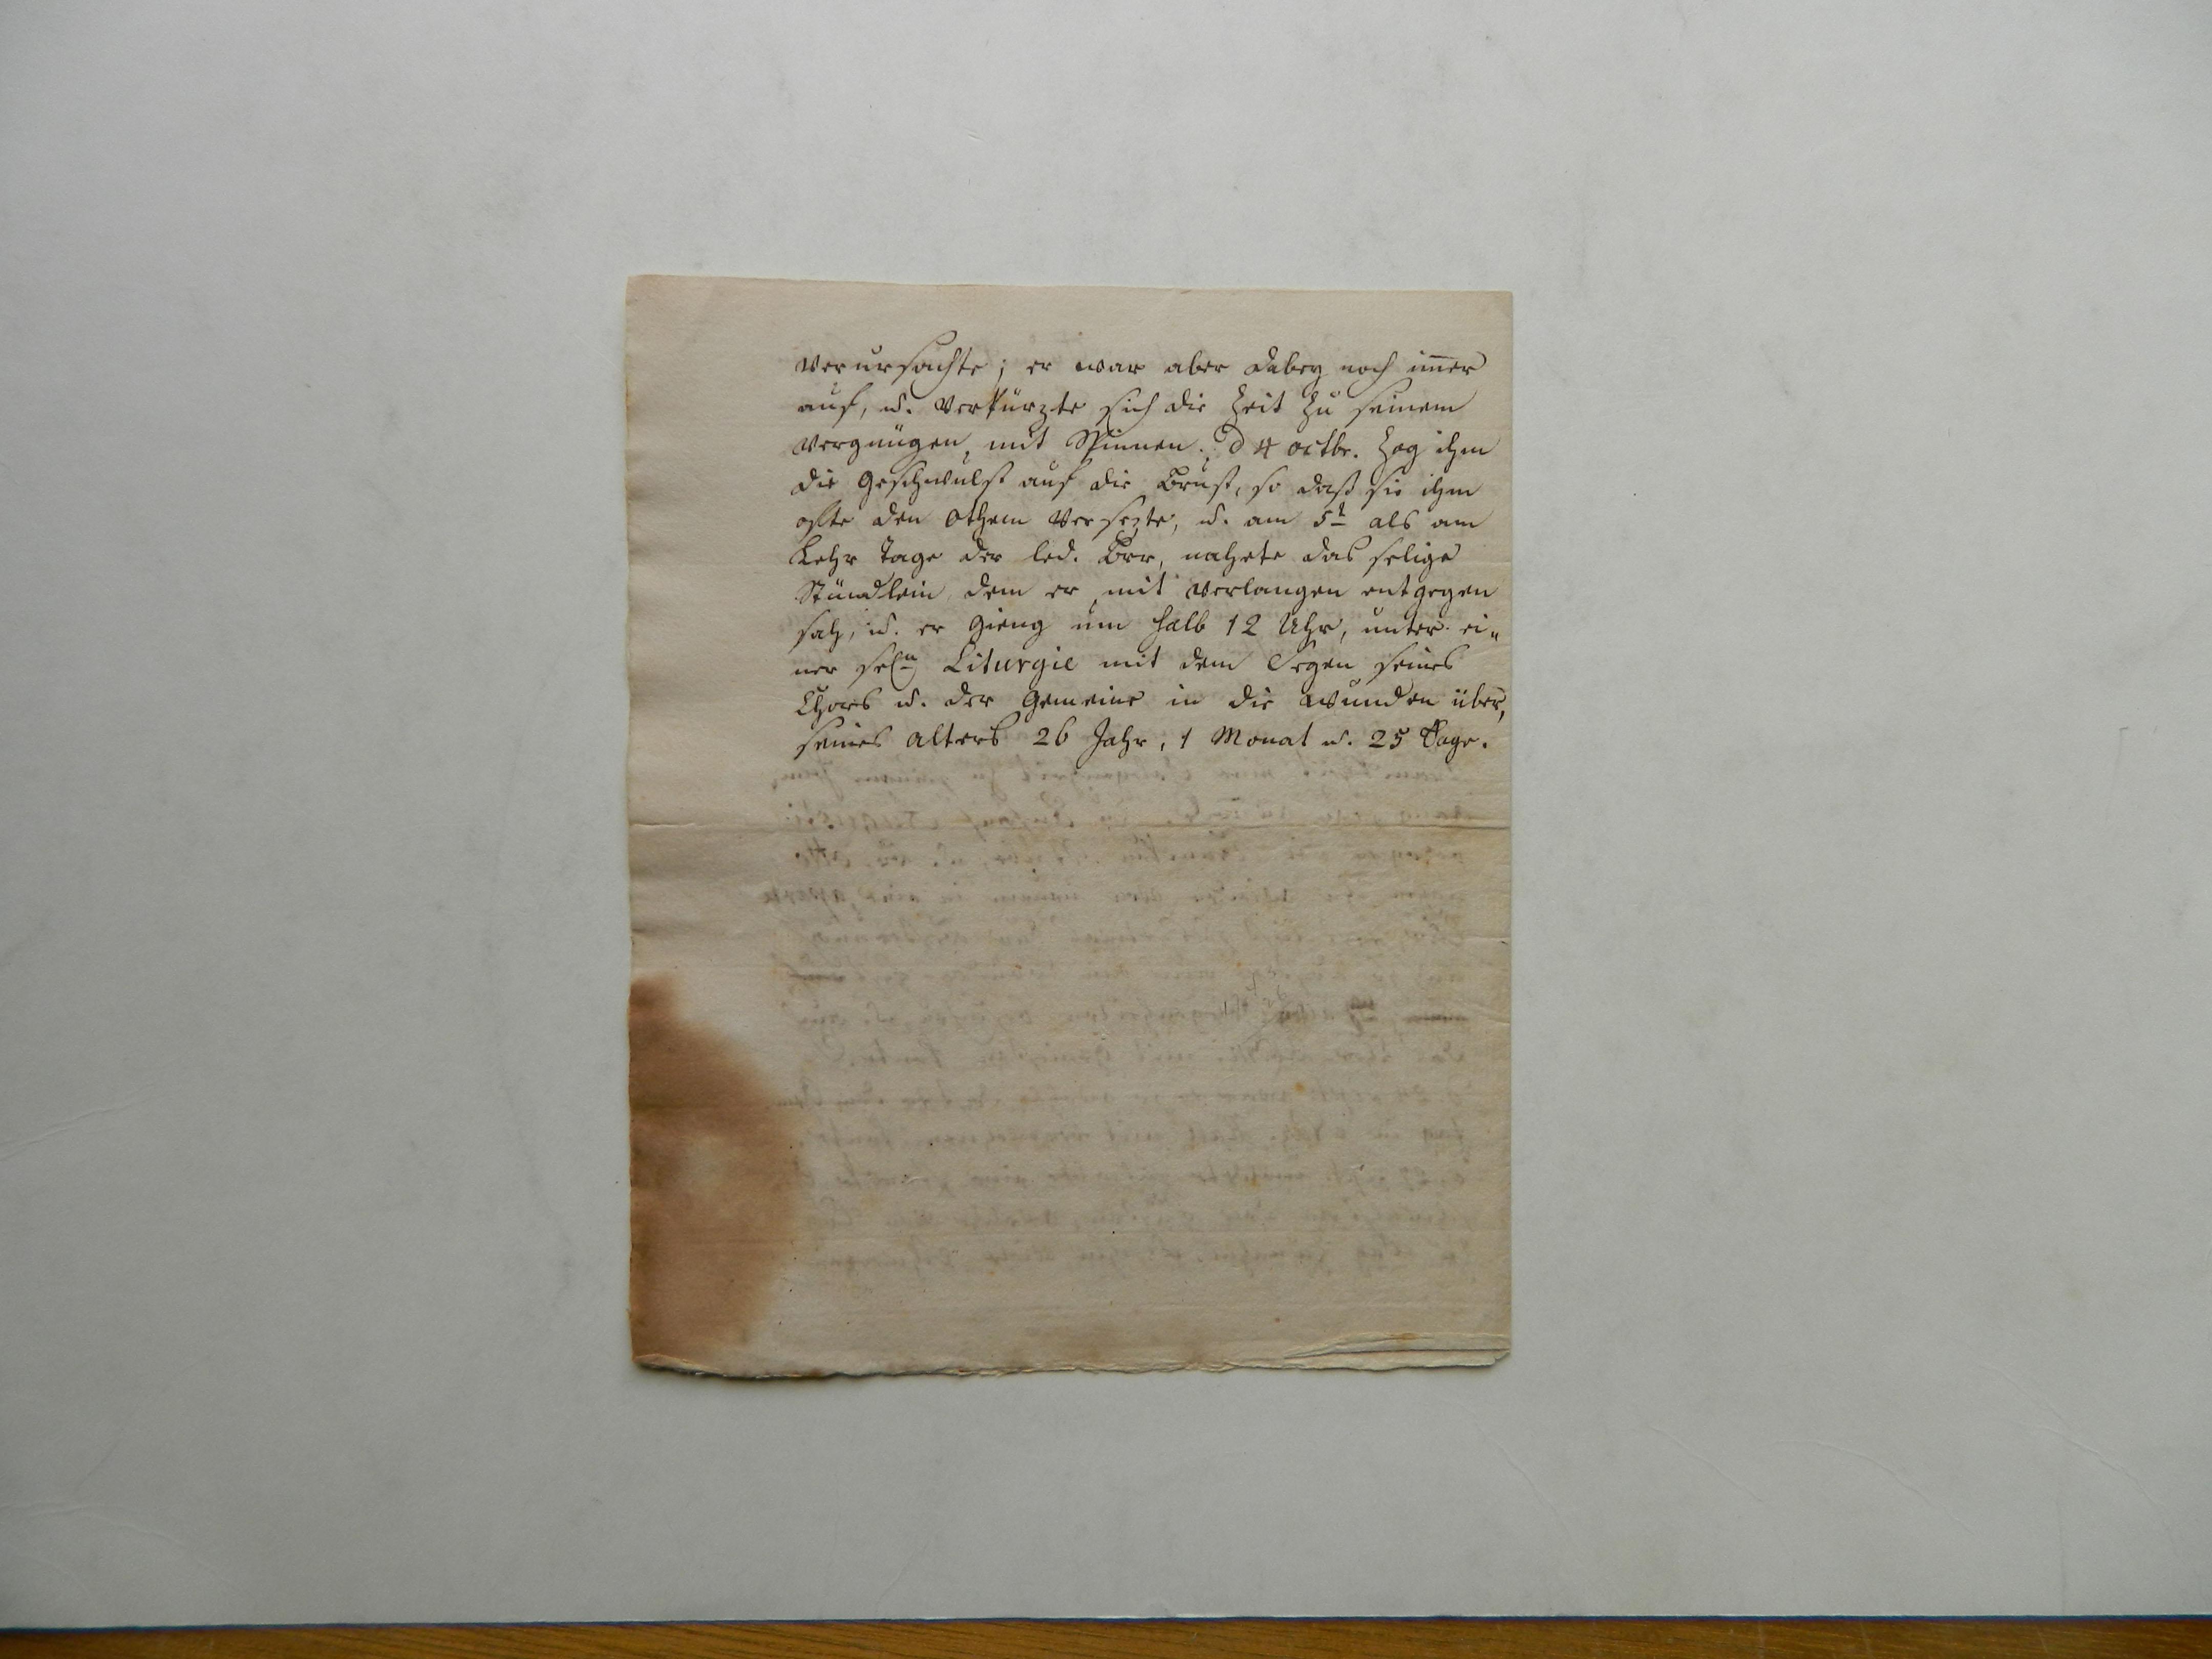 verursachte; er war aber dabey noch im̄er
auf, u. verkürzte sich die Zeit zu seinem
vergnügen, mit Spinnen. d 4 octbr. zog ihm
die Geschwulst auf die Brust, so daß sie ihm
ofte den Othem versezte, u. am 5t als am
Lehr Tage der led. Brr, nahete das selige
Stündlein dem er mit verlangen entgegen
sah, u. er gieng um halb 12 Uhr, unter ei„
ner seln Liturgie mit dem Segen seines
Chors u. der Gemeine in die Wunden über,
seines alters 26 Jahr, 1 Monat u. 25 Tage.